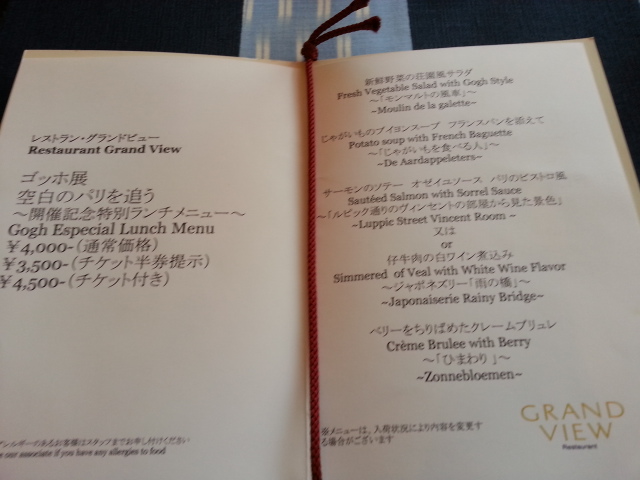 レストラン・グランドビュー
Restaurant Grand View
ゴッホ展
空白のパリを追う
～開催記念特別ランチメニュー～
Gogh Especial Lunch Menu
¥4,000-(通常価格)
¥3,500-(チケット半券提示)
¥4,500-(チケット付き)
アレルギーのあるお客様はスタッフまでお申し付けください
our associate if you have any allergies to food
新鮮野菜の荘園風サラダ
Fresh Vegetable Salad with Gogh Style
～「モンマルトの風車」～
~Moulin de la galette~
じゃがいものブイヨンスープ フランスパンを添えて
Potato soup with French Baguette
～「じゃがいもを食べる人」～
~De Aardappeleters~
サーモンのソテー オゼイユソース パリのビストロ風
Sautéed Salmon with Sorrel Sauce
～「ルピック通りのヴィンセントの部屋から見た景色」
~Luppic Street Vincent Room ~
又は
or
仔牛肉の白ワイン煮込み
Simmered of Veal with White Wine Flavor
～ジャポネズリー「雨の橋」～
~Japonaiserie Rainy Bridge~
ベリーをちりばめたクレームブリュレ
Crème Brulee with Berry
～「ひまわり 」～
~Zonnebloemen~
※メニューは、入荷状況により内容を変更す
る場合がございます
GRAND
VIEW
Restaurant